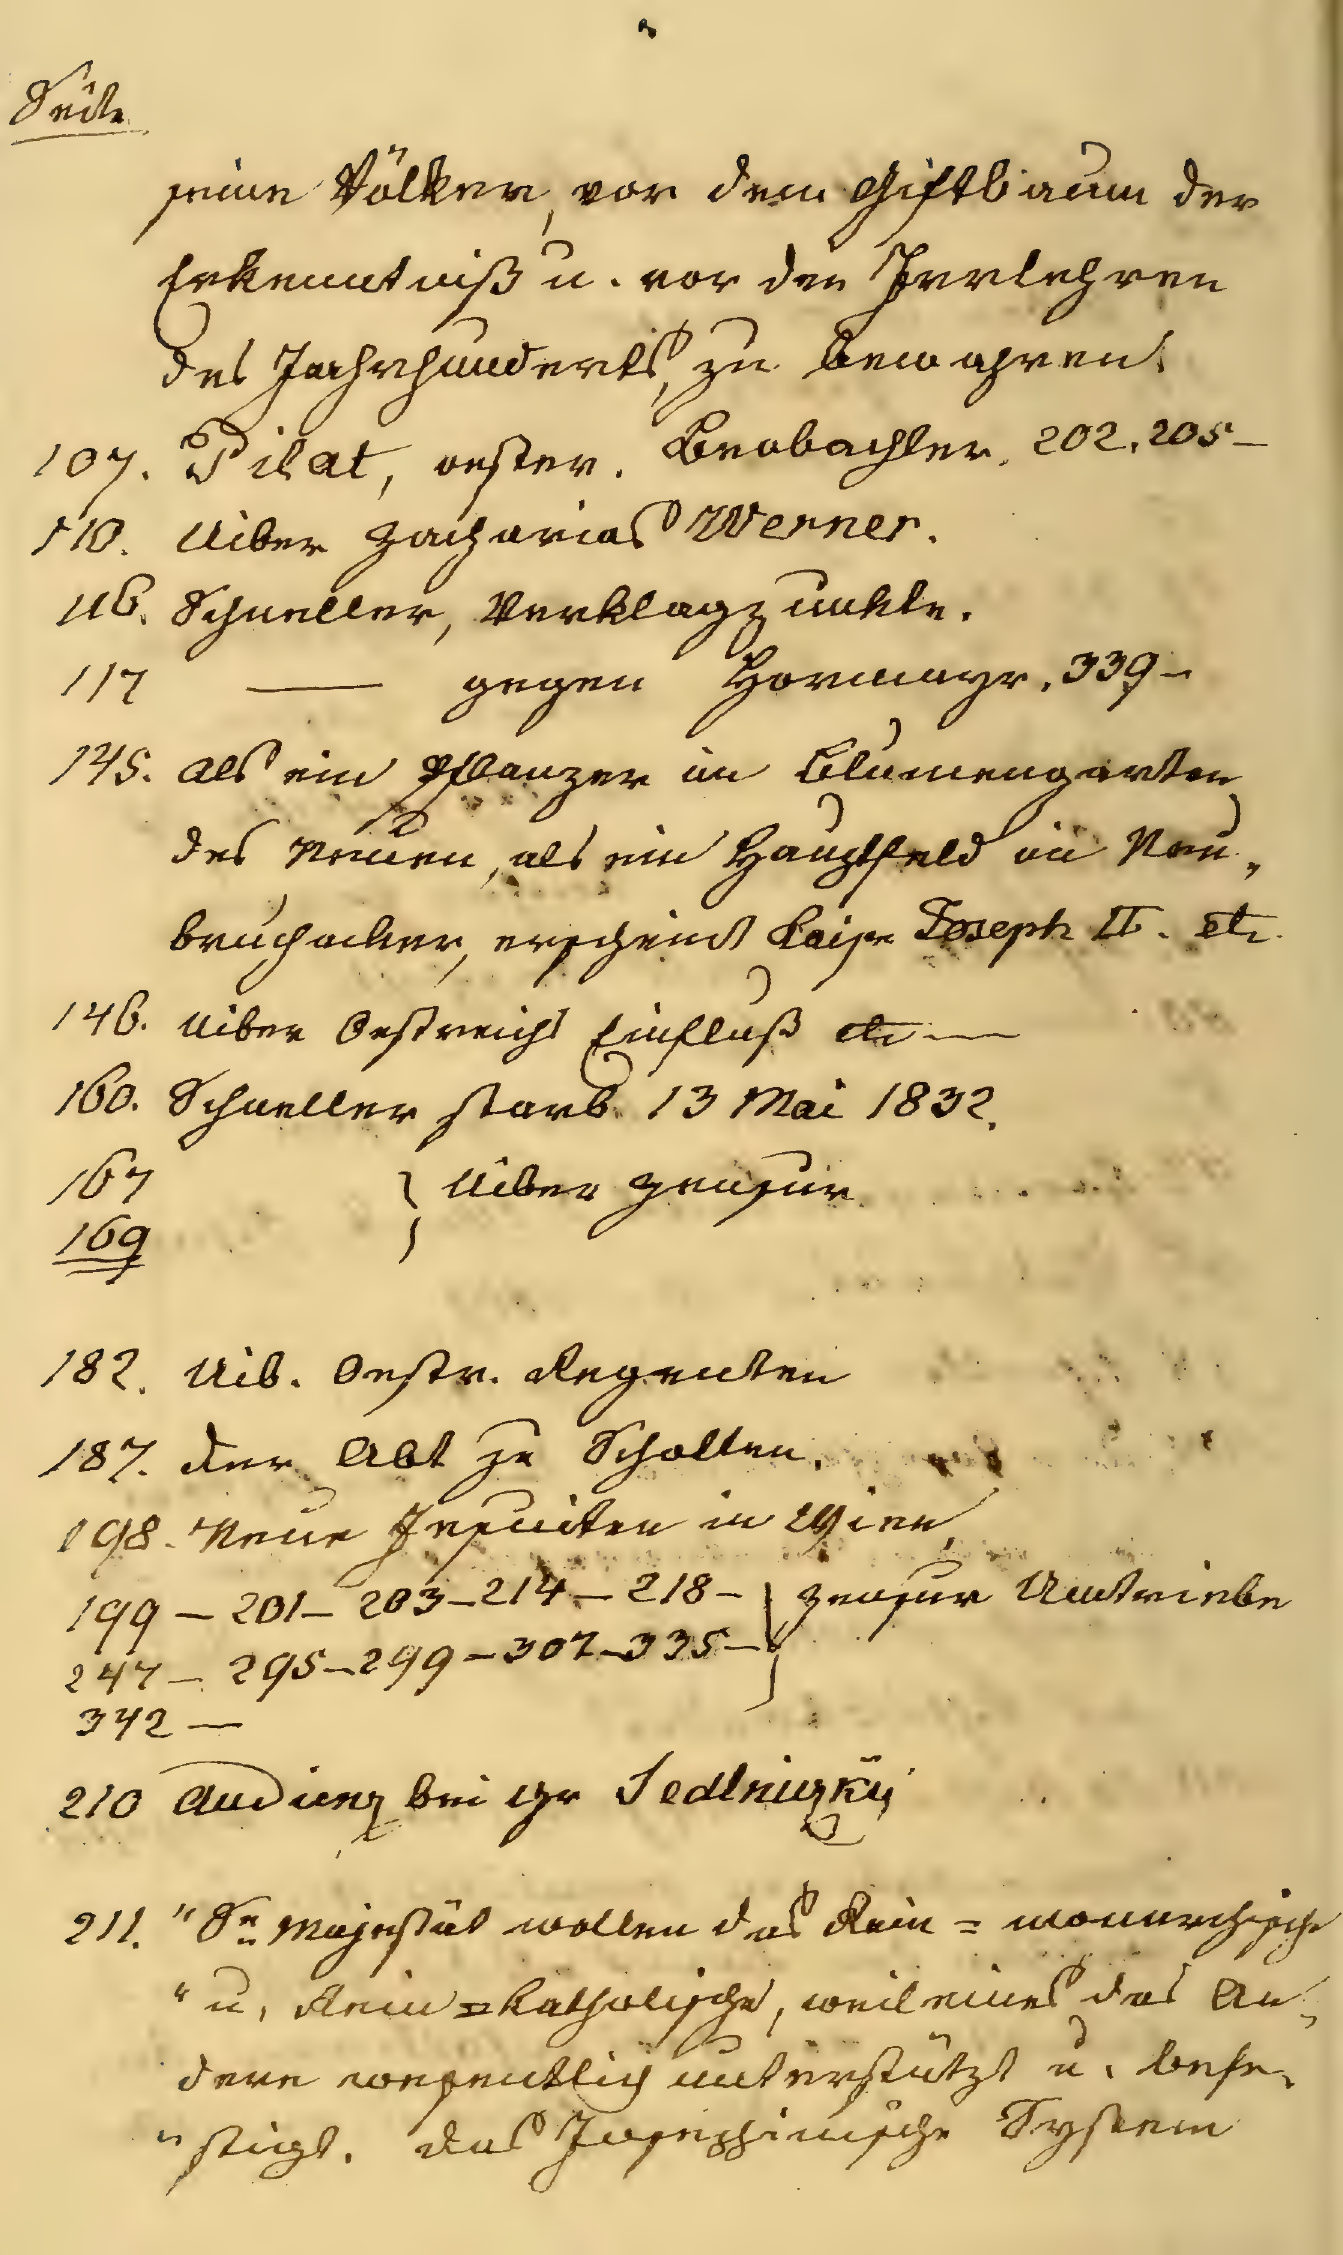 Seite
seine Völker, vor dem Giftbaum der
Erkenntniß u. vor den Irrlehren
des Jahrhunderts, zu bewahren.
107. Pilat, oester. Beobachter. 202. 205—
110. Uiber Zacharias Werner.
116. Schneller, Verklagpunkte.
117 —— gegen Hormayr. 339—
145. Als ein Pflanzer im Blumengarten
des Neuen, als ein Hauptheld im Neu-
bruchacker, erscheint Kaiser Joseph II. etc.
146. Uiber Oestreichs Einfluß etc —
160. Schneller starb 13 Mai 1832.
167 } Uiber Zensur
169
182. Uib. Oestr. Regenten
187. Der Abt zu Schotten.
198. Neue Jesuiten in Wien,
199 — 201 — 203 — 214 — 218 — } Zensur Umtriebe
247 — 295 — 299 — 307 — 335 —
342 —
210 Audienz bei Gr Sedlnizky
211. "Se. Majestät wollen das Rein = monarchische
" u. Rein = katholische, weil eines das An-
dere wesentlich unterstützt u. befe-
" stigt. Das Josephinische System